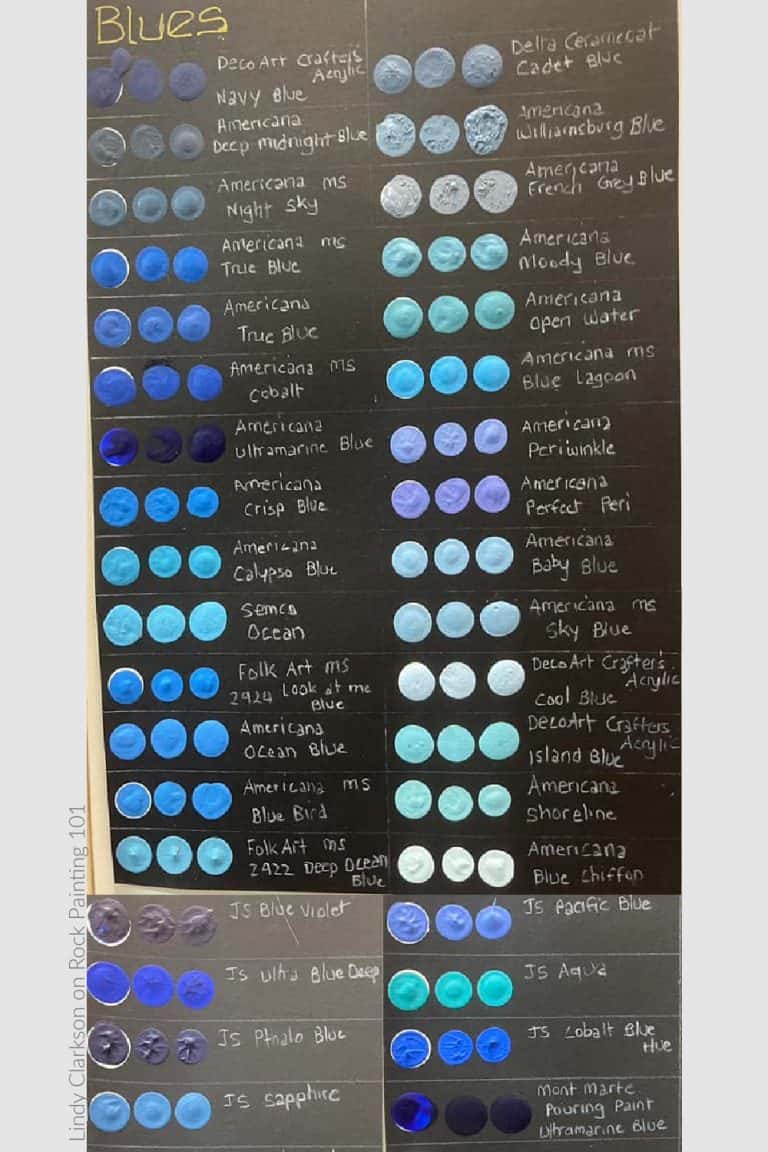 Blues
DecoArt Crafter's
Acrylic
Navy Blue
Americana
Deep Midnight Blue
Americana ms
Night Sky
Americana ms
True Blue
Americana
True Blue
Americana ms
Cobalt
Americana
Ultramarine Blue
Americana
Crisp Blue
Americana
Calypso Blue
Semco
Ocean
Folk Art ms
2924 Look at me
Blue
Americana
Ocean Blue
Americana ms
Blue Bird
Folk Art ms
2922 Deep Ocean
Blue
Delta Ceramcoat
Cadet Blue
Americana
Williamsburg Blue
Americana
French Grey Blue
Americana
Moody Blue
Americana
Open Water
Americana ms
Blue Lagoon
Americana
Periwinkle
Americana
Perfect Peri
Americana
Baby Blue
Americana ms
Sky Blue
DecoArt Crafter's
Acrylic
Cool Blue
DecoArt Crafters
Acrylic
Island Blue
Americana
Shoreline
Americana
Blue Chiffon
JS Blue Violet
JS Ultra Blue Deep
JS Pthalo Blue
JS Sapphire
JS Pacific Blue
JS Aqua
JS Cobalt Blue
Hue
Mont Marte
Pouring Paint
Ultramarine Blue
Lindy Clarkson on Rock Painting 101